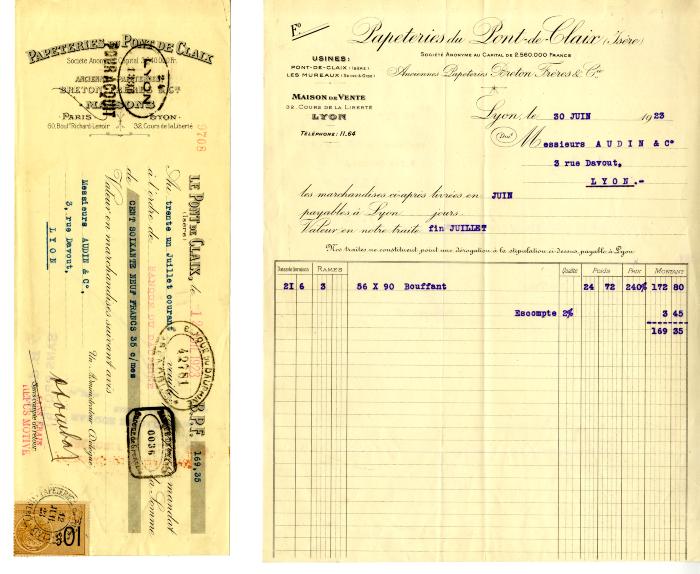 PAPETERIES DU PONT DE CLAIX
Société Anonyme au Capital
ANCIENNES PAPETERIES
BRETON FRERES & Cie
MAISONS
PARIS LYON
60, Boulᵈ Richard-Lenoir 32, Cours de la Liberté
POUR ACQUIT
9708
LE PONT DE CLAIX, le
(Isère)
B.P.F. 169,35
Au trente un Juillet courant
mandat
à l'ordre de
la Somme
de CENT SOIXANTE NEUF FRANCS 35 c/mes
Valeur en marchandises suivant avis
Messieurs AUDIN & C°,
3, rue Davout,
LYON
Un Administrateur Délégué
42781
0036
Sans compte de retour
REFUS MOTIVÉ
F°
Papeteries du Pont-de-Claix (Isère)
Société Anonyme au Capital de 2.560.000 Francs
Anciennes Papeteries Breton Frères & Cie
USINES:
PONT-DE-CLAIX (Isère)
LES MUREAUX (Seine & Oise)
MAISON DE VENTE
32, COURS DE LA LIBERTÉ
LYON
TÉLÉPHONE: 11.64
Lyon, le 30 JUIN 1923
Doit
Messieurs AUDIN & C°
3 rue Davout,
LYON.-
les marchandises ci-après livrées en JUIN
payables à Lyon jours.
Valeur en notre traite fin JUILLET
Nos traites ne constituent point une dérogation à la stipulation ci-dessus, payable à Lyon
RAMES Qualité Poids Prix MONTANT
21 6 3 56 X 90 Bouffant 24 72 240% 172 80
Escompte 2% 3 45
169 35